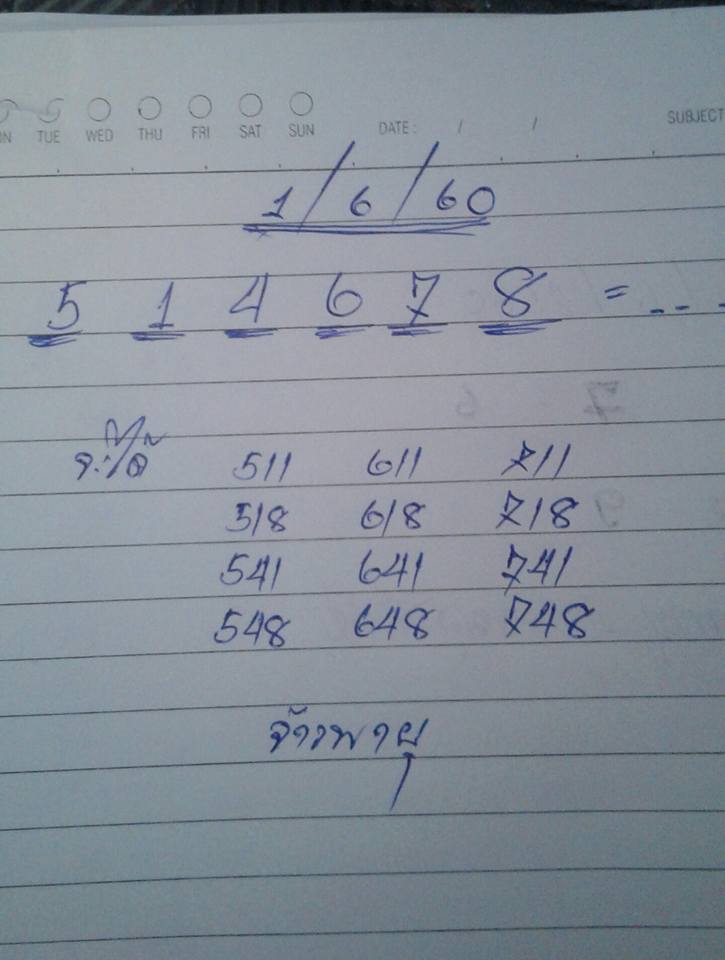 TUE WED THU FRI SAT SUN DATE : / / SUBJECT
1/6/60
5 1 4 6 7 8 = - - -
511 611 711
518 618 718
541 641 741
548 648 748
จ้าวพายุ